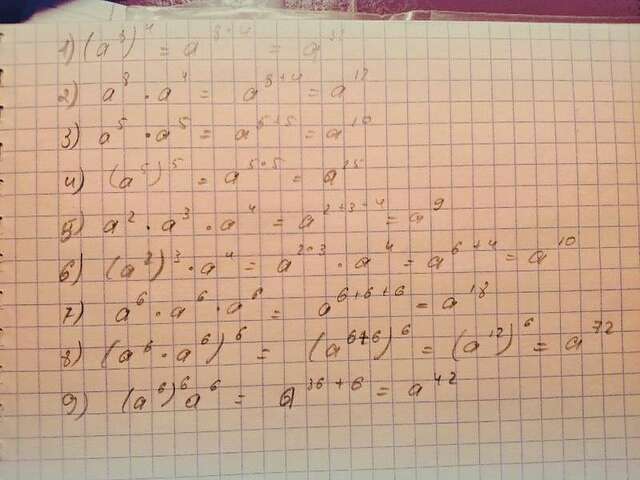 1) (a⁸)⁴ = a⁸·⁴ = a³²
2) a⁸ · a⁴ = a⁸⁺⁴ = a¹²
3) a⁵ · a⁵ = a⁵⁺⁵ = a¹⁰
4) (a⁵)⁵ = a⁵·⁵ = a²⁵
5) a² · a³ · a⁴ = a²⁺³⁺⁴ = a⁹
6) (a²)³ · a⁴ = a²·³ · a⁴ = a⁶⁺⁴ = a¹⁰
7) a⁶ · a⁶ · a⁶ = a⁶⁺⁶⁺⁶ = a¹⁸
8) (a⁶ · a⁶)⁶ = (a⁶⁺⁶)⁶ = (a¹²)⁶ = a⁷²
9) (a⁶)⁶a⁶ = a³⁶⁺⁶ = a⁴²